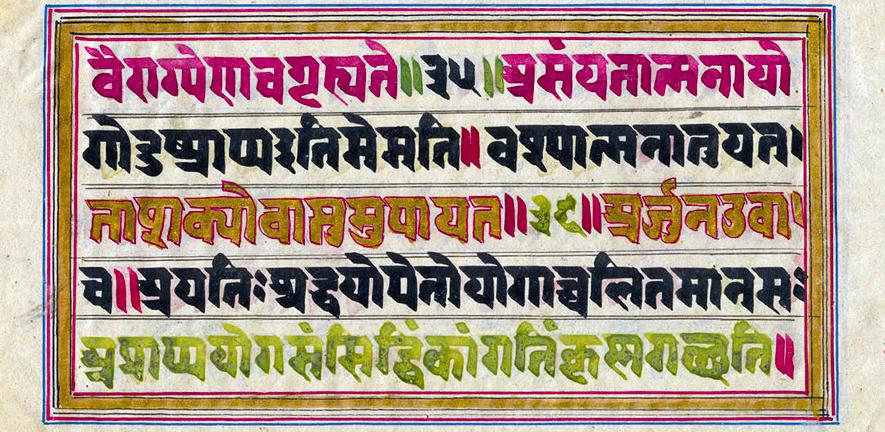 वैराग्येणचगृह्यते॥३५॥असंयतात्मनायो
गोदुष्प्राप्यइतिमेमतिः॥वश्यात्मनातुयत
ताशक्योवाप्तुमुपायत॥३६॥अर्जुनउवा
च॥अयतिःश्रद्धयोपेतोयोगाच्चलितमानसः
अप्राप्ययोगसंसिद्धिंकांगतिंकृष्णगच्छति॥